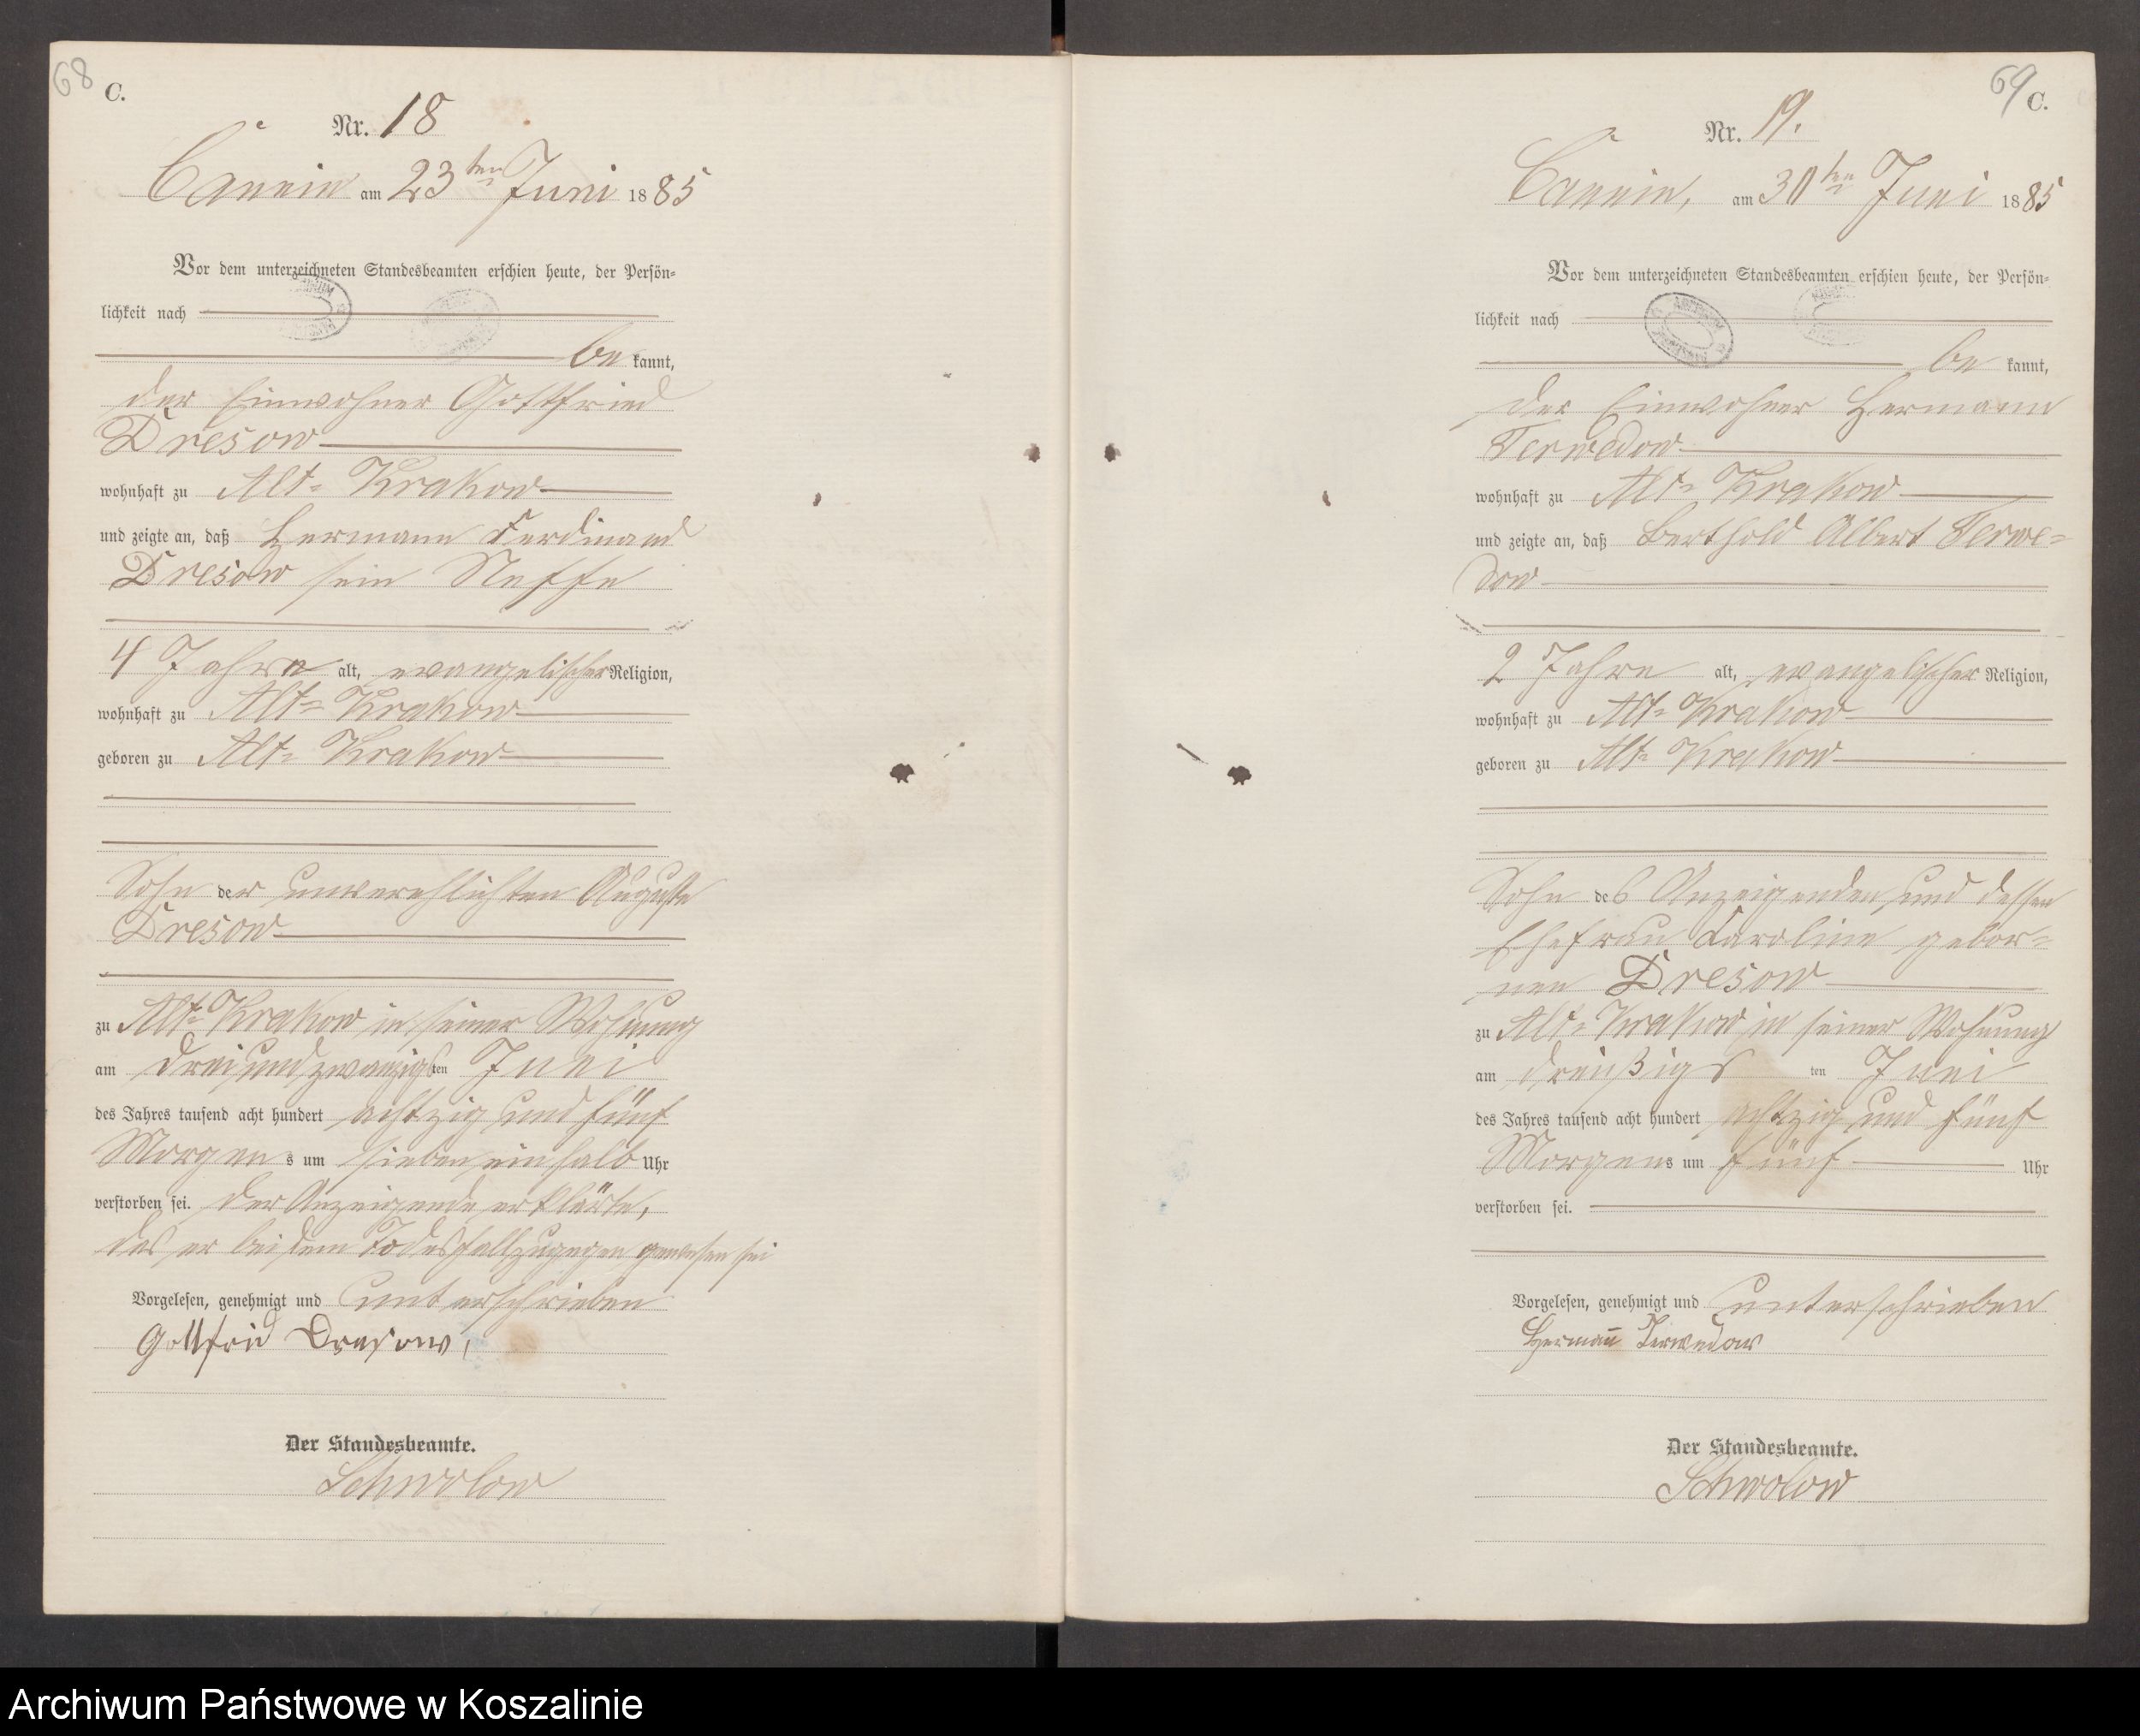 68
C.
Nr. 18
Cannin am 23ten Juni 1885
Vor dem unterzeichneten Standesbeamten erschien heute, der Persön=
lichkeit nach
be kannt,
der Einwohner Gottfried
Dresow
wohnhaft zu Alt-Krakow
und zeigte an, daß Hermann Ferdinand
Dresow sein Neffe
4 Jahre alt, evangelischer Religion,
wohnhaft zu Alt-Krakow
geboren zu Alt-Krakow
Sohn der unverehlichten Auguste
Dresow
zu Alt-Krakow in seiner Wohnung
am drei und zwanzigsten Juni
des Jahres tausend acht hundert achtzig und fünf
Morgens um sieben einhalb Uhr
verstorben sei. Der Anzeigende erklärte,
das er bei dem Todesfall zugegen gewesen sei
Vorgelesen, genehmigt und unterschrieben
Gottfrid Dresow,
Der Standesbeamte.
Schwolow
69
C.
Nr. 19.
Cannin, am 30ten Juni 1885
Vor dem unterzeichneten Standesbeamten erschien heute, der Persön=
lichkeit nach
be kannt,
der Einwohner Hermann
Terwedow
wohnhaft zu Alt-Krakow
und zeigte an, daß Berthold Albert Terwe=
dow
2 Jahre alt, evangelischer Religion,
wohnhaft zu Alt-Krakow
geboren zu Alt-Krakow
Sohn des Anzeigenden und dessen
Ehefrau Karoline gebor=
nen Dresow
zu Alt-Krakow in seiner Wohnung
am dreißigsten Juni
des Jahres tausend acht hundert achtzig und fünf
Morgens um fünf Uhr
verstorben sei.
Vorgelesen, genehmigt und unterschrieben
Hermann Terwedow
Der Standesbeamte.
Schwolow
Archiwum Państwowe w Koszalinie